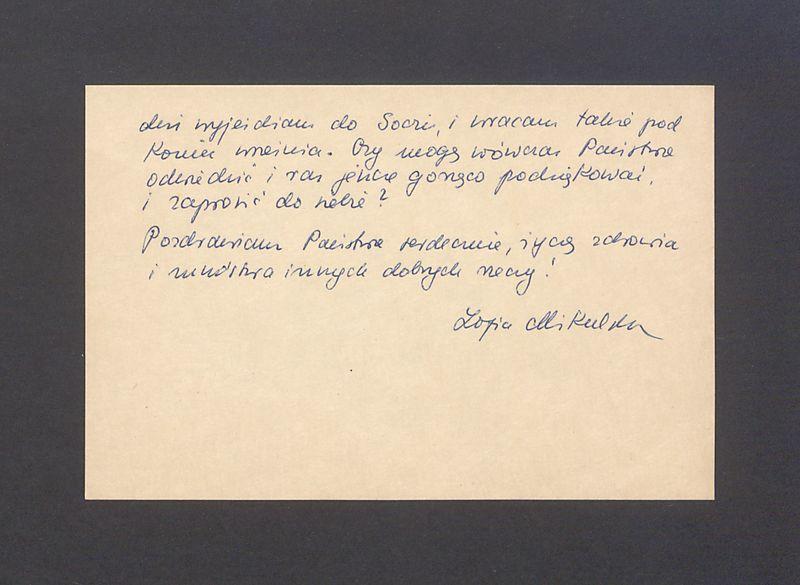 dziś wyjeżdżam do Soczi, i wracam także pod
koniec września. Czy mogę wówczas Państwa
odwiedzić i raz jeszcze gorąco podziękować,
i zaprosić do siebie?
Pozdrawiam Państwa serdecznie, życzę zdrowia
i mnóstwa innych dobrych rzeczy!
Zofia Mikulska